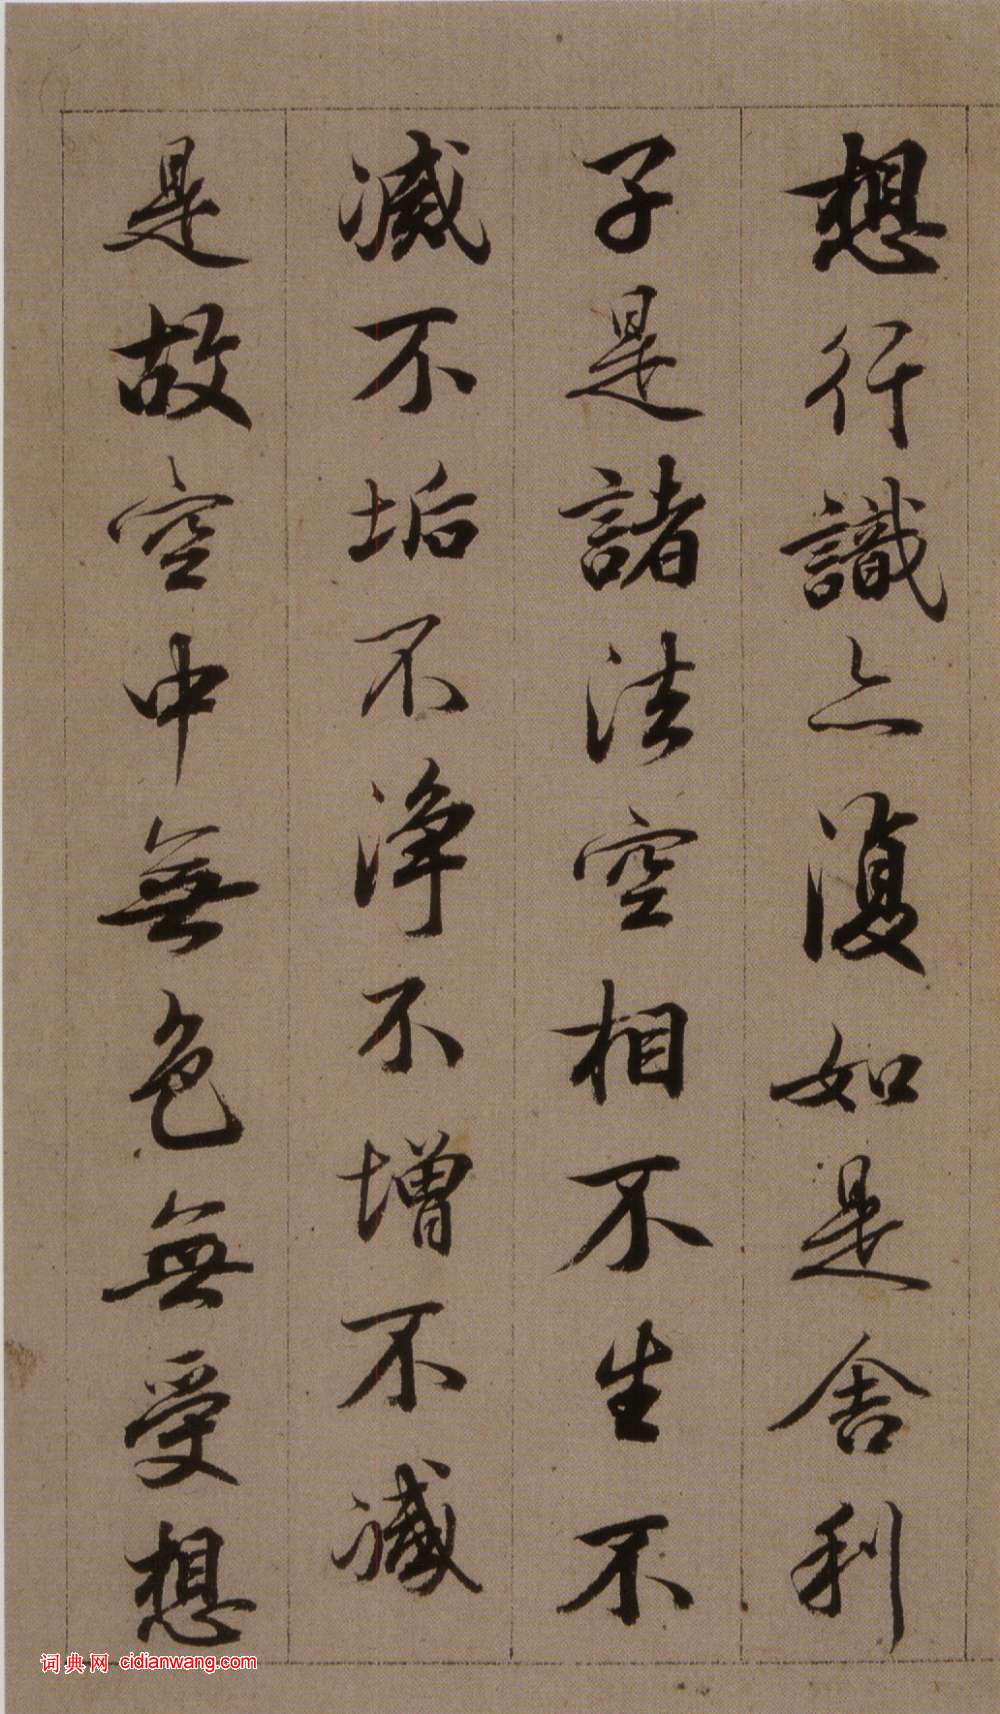 想行識亦復如是舍利
子是諸法空相不生不
滅不垢不淨不增不減
是故空中無色無受想
词典网 cidianwang.com